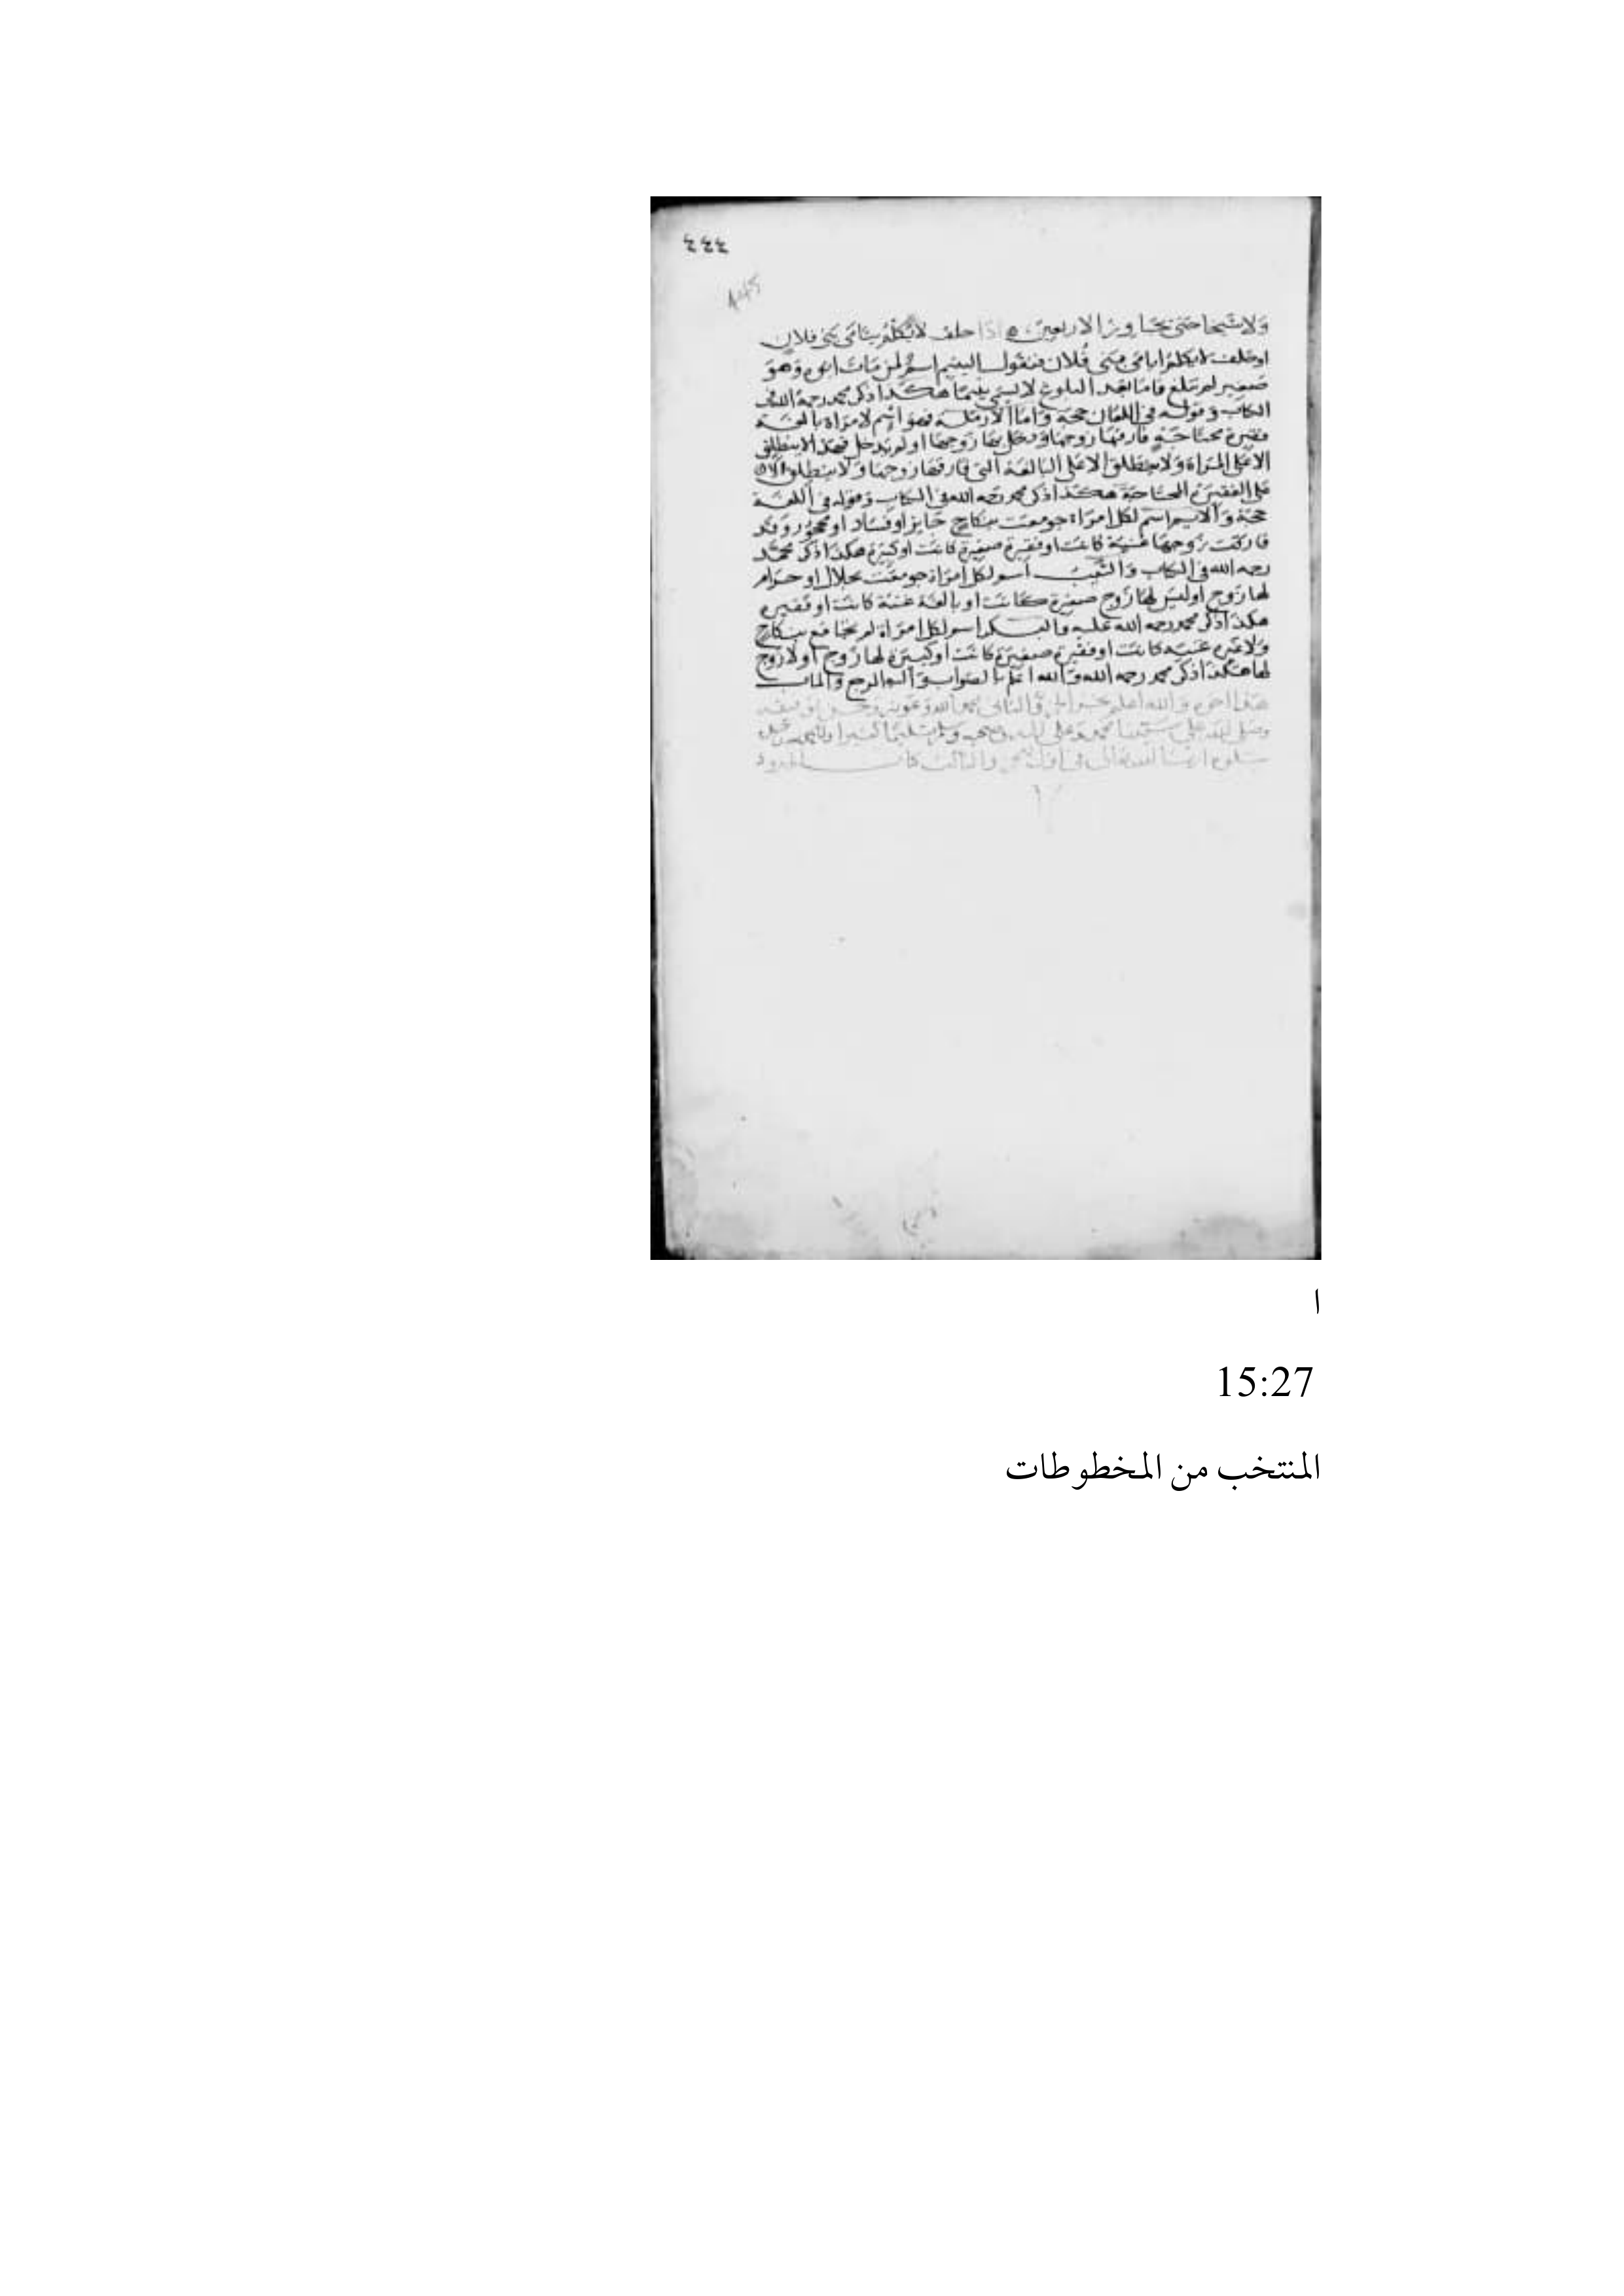 ٤٤٤
ولا شيخا حتى يجاوز الاربعين اذا حلف لا يكلم يتامى بنى فلان
او حلف لا يكلم ايامى بنى فلان فنقول اليتيم اسم لمن مات ابوه وهو
صغير لم يبلغ فاما بعد البلوغ لا يسمى يتيما هكذا ذكر محمد رحمه الله فى
الكتاب وقوله فى اللغات حجة واما الارملة فهو اسم لامراة بالغة
فقيرة محتاجة فارقها زوجها ودخل بها زوجها او لم يدخل فهذا لا ينطلق
الا على المراة ولا ينطلق الا على البالغة التى فارقها زوجها ولا ينطلق الا
على الفقيرة المحتاجة هكذا ذكر محمد رحمه الله فى الكتاب وقوله فى اللغة
حجة والايم اسم لكل امراة جومعت بنكاح جايز او فساد او فجور وقد
فارقت زوجها غنية كانت او فقيرة صغيرة كانت او كبيرة هكذا ذكر محمد
رحمه الله فى الكتاب والثيب اسم لكل امراة جومعت بحلال او حرام
لها زوج او ليس لها زوج صغيرة كانت او بالغة غنية كانت او فقيره
هكذا ذكر محمد رحمه الله عليه والبكر اسم لكل امراة لم تجامع بنكاح
ولا غيره غنيه كانت او فقيرة صغيرة كانت او كبيرة لها زوج او لا زوج
لها هكذا ذكر محمد رحمه الله والله اعلم بالصواب واليه المرجع والماب
هذا اخره والله اعلم الثانى بحمد الله وعونه وحسن توفيقه
وصلى الله على سيدنا محمد وعلى اله وصحبه وسلم تسليما كثيرا
يتلوه ان شا الله تعالى فى اول الثالث كتاب الحدود
ا
15:27
المنتخب من المخطوطات